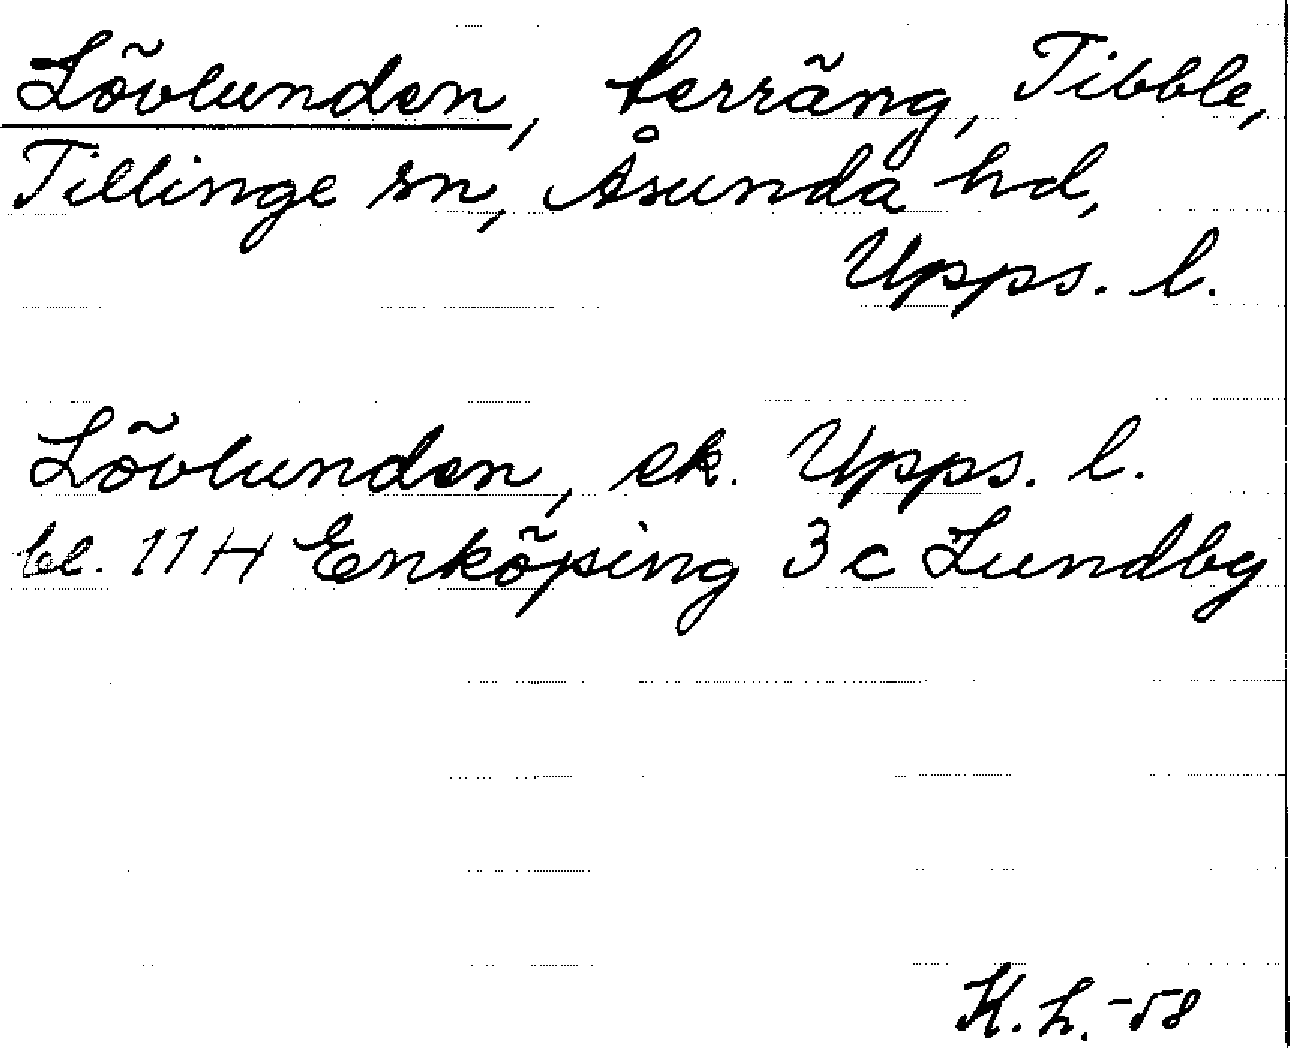 Lövlunden, terräng, Tibble,
Tillinge sn, Åsunda hd,
Upps. l.
Lövlunden, ek. Upps. l.
bl. 11 H Enköping 3 c Lundby
K. L. -58